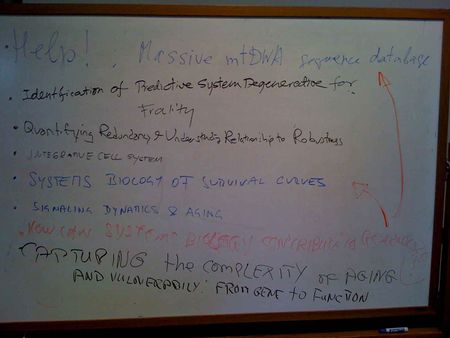 • Help! . Massive mtDNA sequence database
• Identification of Predictive System Degenerative for
Frailty
• Quantifying Redundancy & Understanding Relationship to Robustness
• INTEGRATIVE CELL SYSTEM
• SYSTEMS BIOLOGY OF SURVIVAL CURVES
• SIGNALING DYNAMICS & AGING
• HOW CAN SYSTEMS BIOLOGY CONTRIBUTE to
CAPTURING the COMPLEXITY OF AGING
AND VULNERABILITY: FROM GENE to FUNCTION